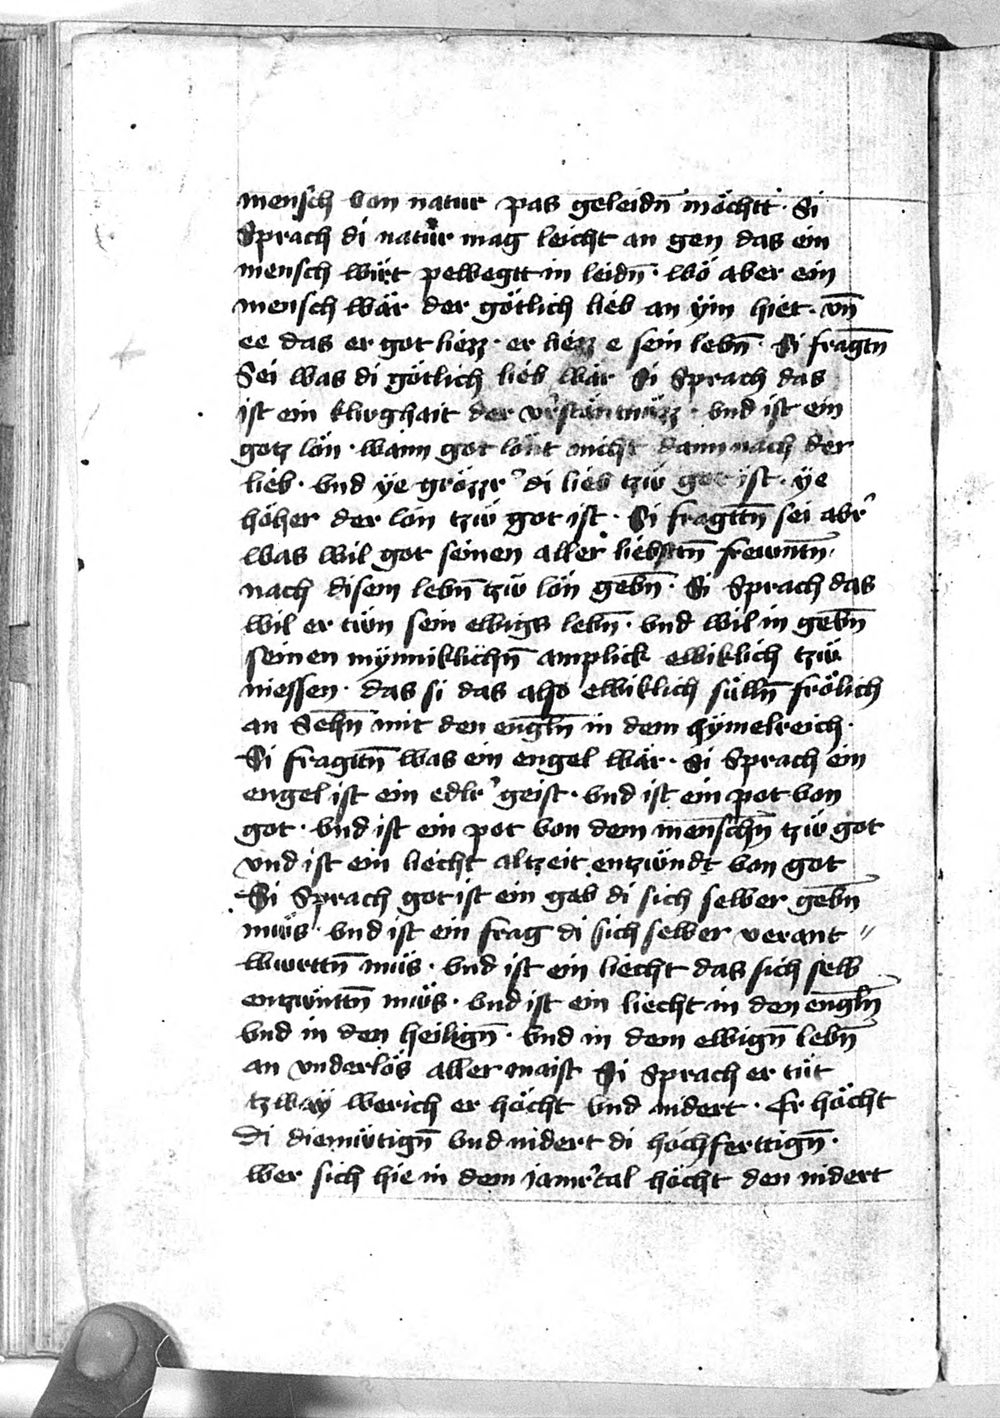 mensch von natur pas geleidn̄ möchtt · Si
Sprach di natur mag leicht an gen das ein
mensch wirt pewegtt in leidn̄ · wö aber ein
mensch wär der götlich lieb an ÿm hiet · vn̄
ee das er got liezz · er liezz e sein lebn̄ · Si fragtn̄
Sei was di götlich lieb wär Si Sprach das
ist ein klughait der v̓stäntnüzz · vnd ist ein
gotz lön · wann got lönt nicht dann nach der
lieb · vnd ÿe grözzr̓ di lieb tzw̍ got ist · ÿe
höher der lön tzw̍ got ist · Si fragttn̄ sei abr̓
was wil got seinen aller liebsttn̄ frewnttn̄
nach disem lebn̄ tzw̍ lön gebn̄ · Si Sprach das
wil er tw̍n sein ewigs lebn̄ · vnd wil in gebn̄
seinen mÿnniklichn̄ anplick ewiklich tzw̍
niessen · das si das also ewiklich sülln̄ frölich
an Sehn̄ mit den engln̄ in dem hÿmelreich ·
Si fragttn̄ was ein engel wär · Si Sprach ein
engel ist ein edlr̓ geist · vnd ist ein pot von
got · vnd ist ein pot von dem menschn̄ tzw̍ got
vnd ist ein liecht altzeit entzw̍ndt von got
Si Sprach got ist ein gab di sich selber gebn̄
mw̍s · vnd ist ein frag di sich selber verant〃
wurttn̄ müs · vnd ist ein liecht das sich selb
entzw̍nttn̄ mw̍s · vnd ist ein liecht in den engln̄
vnd in den heilign̄ · vnd in dem ewign̄ lebn̄
an vnderlös aller maist Si Sprach er tüt
tzwaÿ werich er höcht vnd nidert · Er höcht
Di diemw̍tign̄ vnd nidert di hochferttign̄ ·
wer sich hie in dem jamr̓tal höcht den nidert